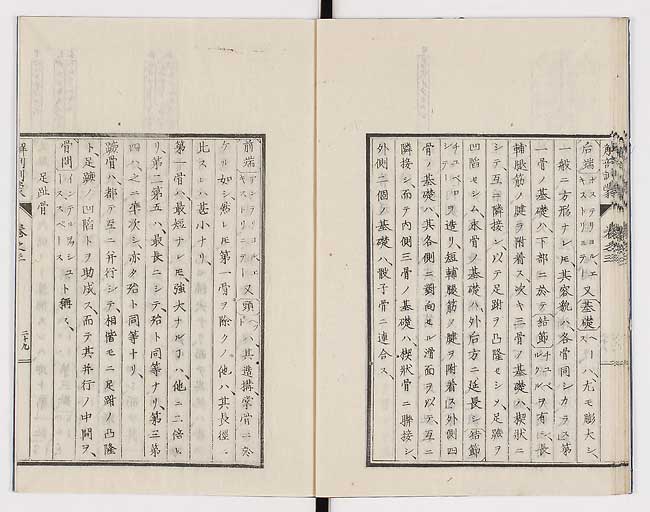 後端 ポステリオルエ キストリミテート 又基礎 ベース ハ、尤モ膨大シ、
一般ニ方形ナレモ其容貌ハ各骨同シカラス」第
一骨ノ基礎ハ下部ニ於テ結節 チユベルクル ヲ有シ、長
腓腿筋ノ腱ヲ附着ス、次キ三骨ノ基礎ハ、楔状ニ
シテ互ニ隣接シ、以テ足跗ヲ凸隆セシメ、足蹠ヲ
凹陥セシム、末骨ノ基礎ハ、外后方ニ延長シ、結節
チユベロシテー ヲ造リ、短腓腿筋ノ腱ヲ附着ス」外側四
骨ノ基礎ハ、其各側ニ對向セル滑面ヲ以テ、互ニ
隣接シ、而テ内側三骨ノ基礎ハ、楔狀骨ニ臍接シ、
外側二個ノ基礎ハ、骰子骨ニ連合ス、
前端 又頭 ハ、其造構、掌骨ニ於
ケルカ如シ、然レモ第一骨ヲ除クノ他ハ、其長徑ニ
比スレハ甚小ナリ、
第一骨ハ、最短ナレモ、強大ナルヿハ、他ニ二倍シ
リ、第二第五ハ、最長ニシテ、殆ト同等ナリ、第三第
四ハ、之ニ準次シ、亦タ殆ト同等ナリ、
蹠骨ハ、都テ互ニ并行シテ、相偕モニ足跗ノ凸隆
ト足蹠ノ凹陥トヲ助成ス、而テ其并行ノ中間ヲ、
骨間 インテルヲシユス スペース ト稱ス、
足趾骨
解剖訓蒙 卷之三 二十九